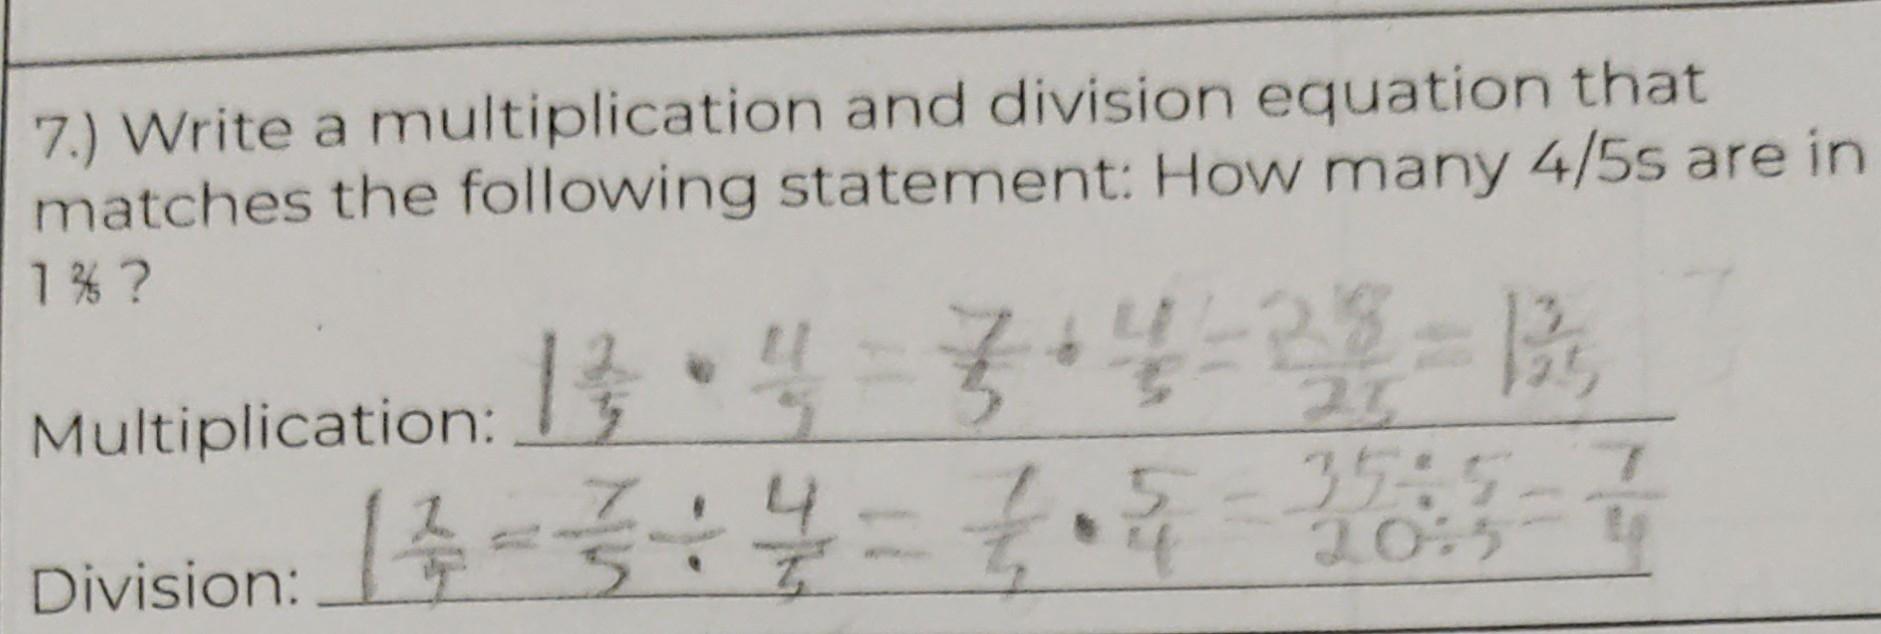 7.) Write a multiplication and division equation that
matches the following statement: How many 4/5s are in
1 ⅖ ?
Multiplication: 1 2/5 · 4/5 = 7/5 · 4/5 = 28/25 = 1 3/25
Division: 1 2/5 = 7/5 ÷ 4/5 = 7/5 · 5/4 = 35÷5/20÷5 = 7/4